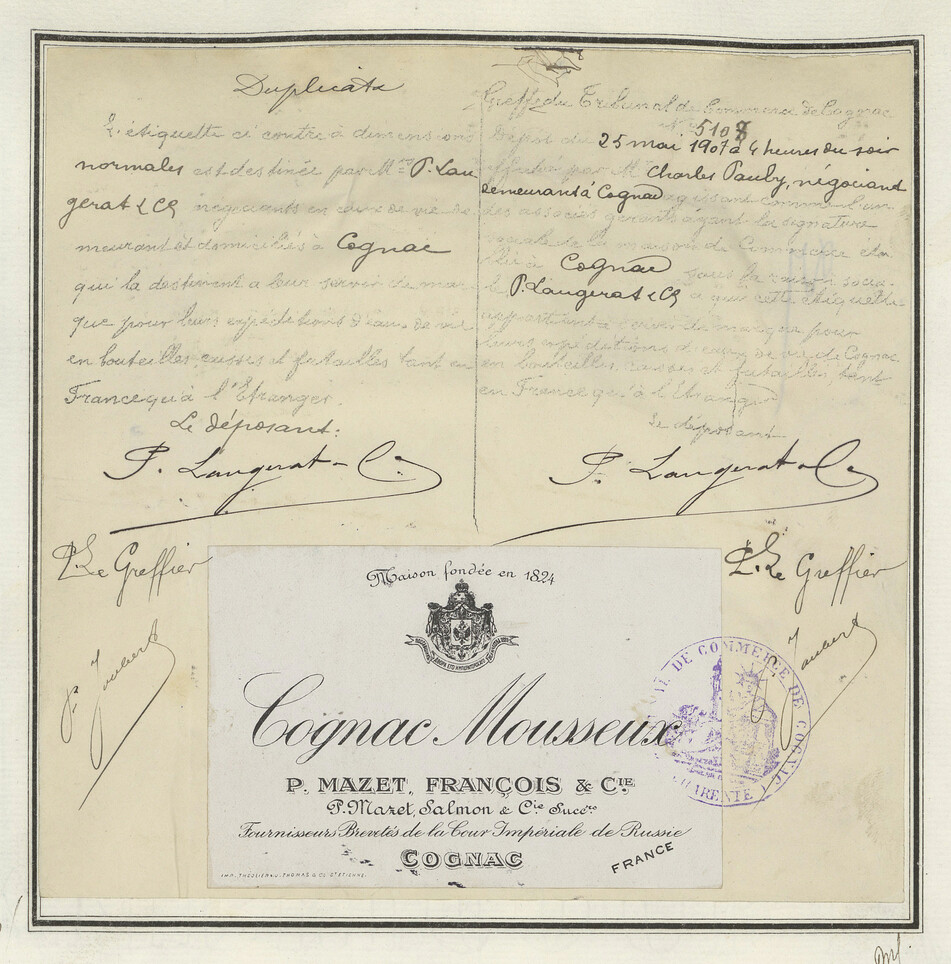 Duplicata
L'étiquette ci contre à dimensions
normales est destinée par M.rs P. Lau
gerat & Cie négociants en eaux de vie de
meurant et domiciliés à Cognac
qui la destinent a leur servir de mar
que pour leurs expéditions d'eau de vie
en bouteilles, caisses et futailles tant en
France qu'à l'Etranger.
Le déposant:
P. Laugerat & Co.
P. Le Greffier
P. Joubert
Greffe du Tribunal de Commerce de Cognac
N.o 5107
Dépôt du 25 mai 1907 à 4 heures du soir
effectué par M.r Charles Pauby, négociant
demeurant à Cognac agissant comme l'un
des associés gérants ayant la signature
sociale de la maison de Commerce éta
blie à Cognac sous la raison socia-
le, P. Laugerat & Cie a qui cette étiquette
appartient à servir de marque pour
leurs expéditions d'eaux de vie de Cognac
en bouteilles, caisses et futailles, tant
en France qu'à l'Etranger
Le déposant
P. Laugerat & Co.
P. Le Greffier
Joubert
Maison fondée en 1824
Cognac Mousseux
P. MAZET, FRANÇOIS & CIE.
P. Mazet, Salmon & Cie Succrs
Fournisseurs Brevetés de la Cour Impériale de Russie
COGNAC
FRANCE
IMP. THÉOLIER J., THOMAS & CO. ST ETIENNE.
TRIBUNAL DE COMMERCE DE COGNAC
CHARENTE